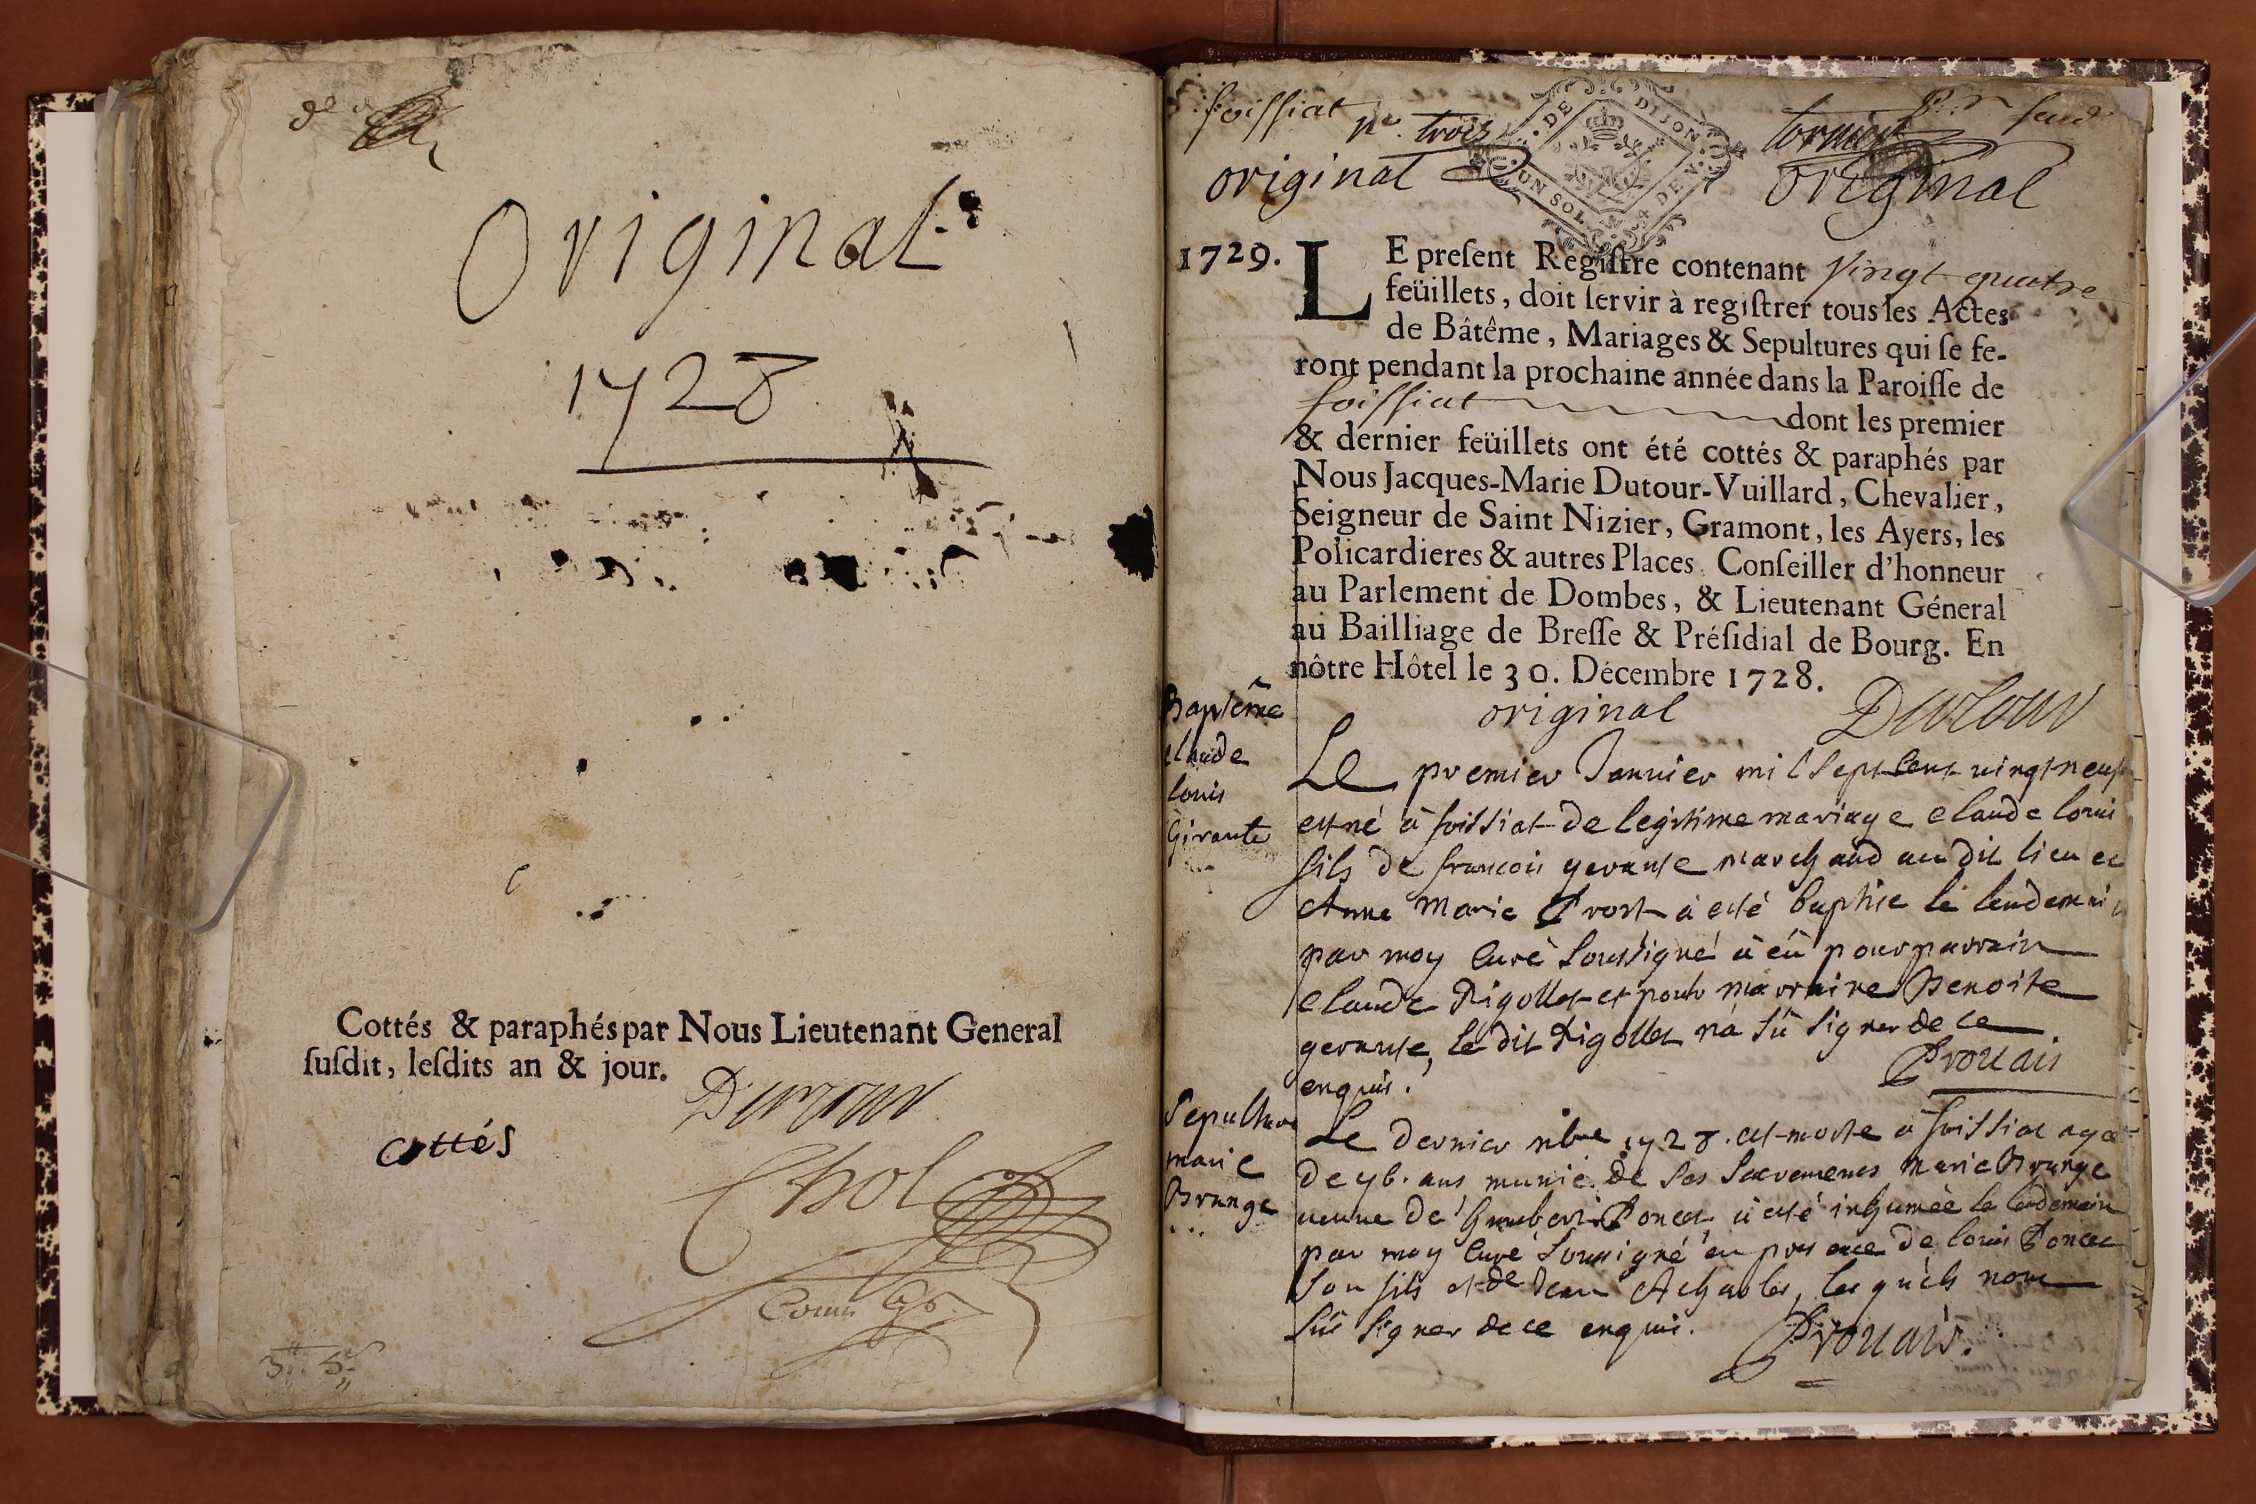 Original
1728
Cottés & paraphés par Nous Lieutenant General
ſuſdit, leſdits an & jour.
Dutour
cottés
Chol
foissiat
no. trois
original
original
DE DIJON
UN SOL 4 DEN.
1729.
LE preſent Regiſtre contenant Vingt quatre
feüillets, doit ſervir à regiſtrer tous les Actes
de Bâtême, Mariages & Sepultures qui ſe fe-
ront pendant la prochaine année dans la Paroiſſe de
foissiat dont les premier
& dernier feüillets ont été cottés & paraphés par
Nous Jacques-Marie Dutour-Vuillard, Chevalier,
Seigneur de Saint Nizier, Gramont, les Ayers, les
Policardieres & autres Places. Conſeiller d'honneur
au Parlement de Dombes, & Lieutenant Géneral
au Bailliage de Breſſe & Préſidial de Bourg. En
nôtre Hôtel le 30. Décembre 1728.
original Dutour
Baptême
claude
louis
Le premier Janvier mil sept cent vingt neuf
est né à foissiat de legitime mariage claude louis
fils de francois gerauste marchand au dit lieu et
Anne Marie Prost à esté baptisé le lendemain
par moy curé soussigné à eü pour parrain
claude Rigollet et pour marraine Benoite
gerauste, le dit Rigollet n'a sü signer de ce
enquis. Prouais
Sepulture
marie
Brunge
Le dernier xbre 1728. est morte à foissiat agée
de 76. ans munie de ses sacremens marie Brunge
veuve de humbert Poncet à esté inhumée le lendemain
par moy curé soussigné en presence de louis Poncet
son fils et de Jean, lesquels n'ont
sü signer de ce enquis. Prouais.